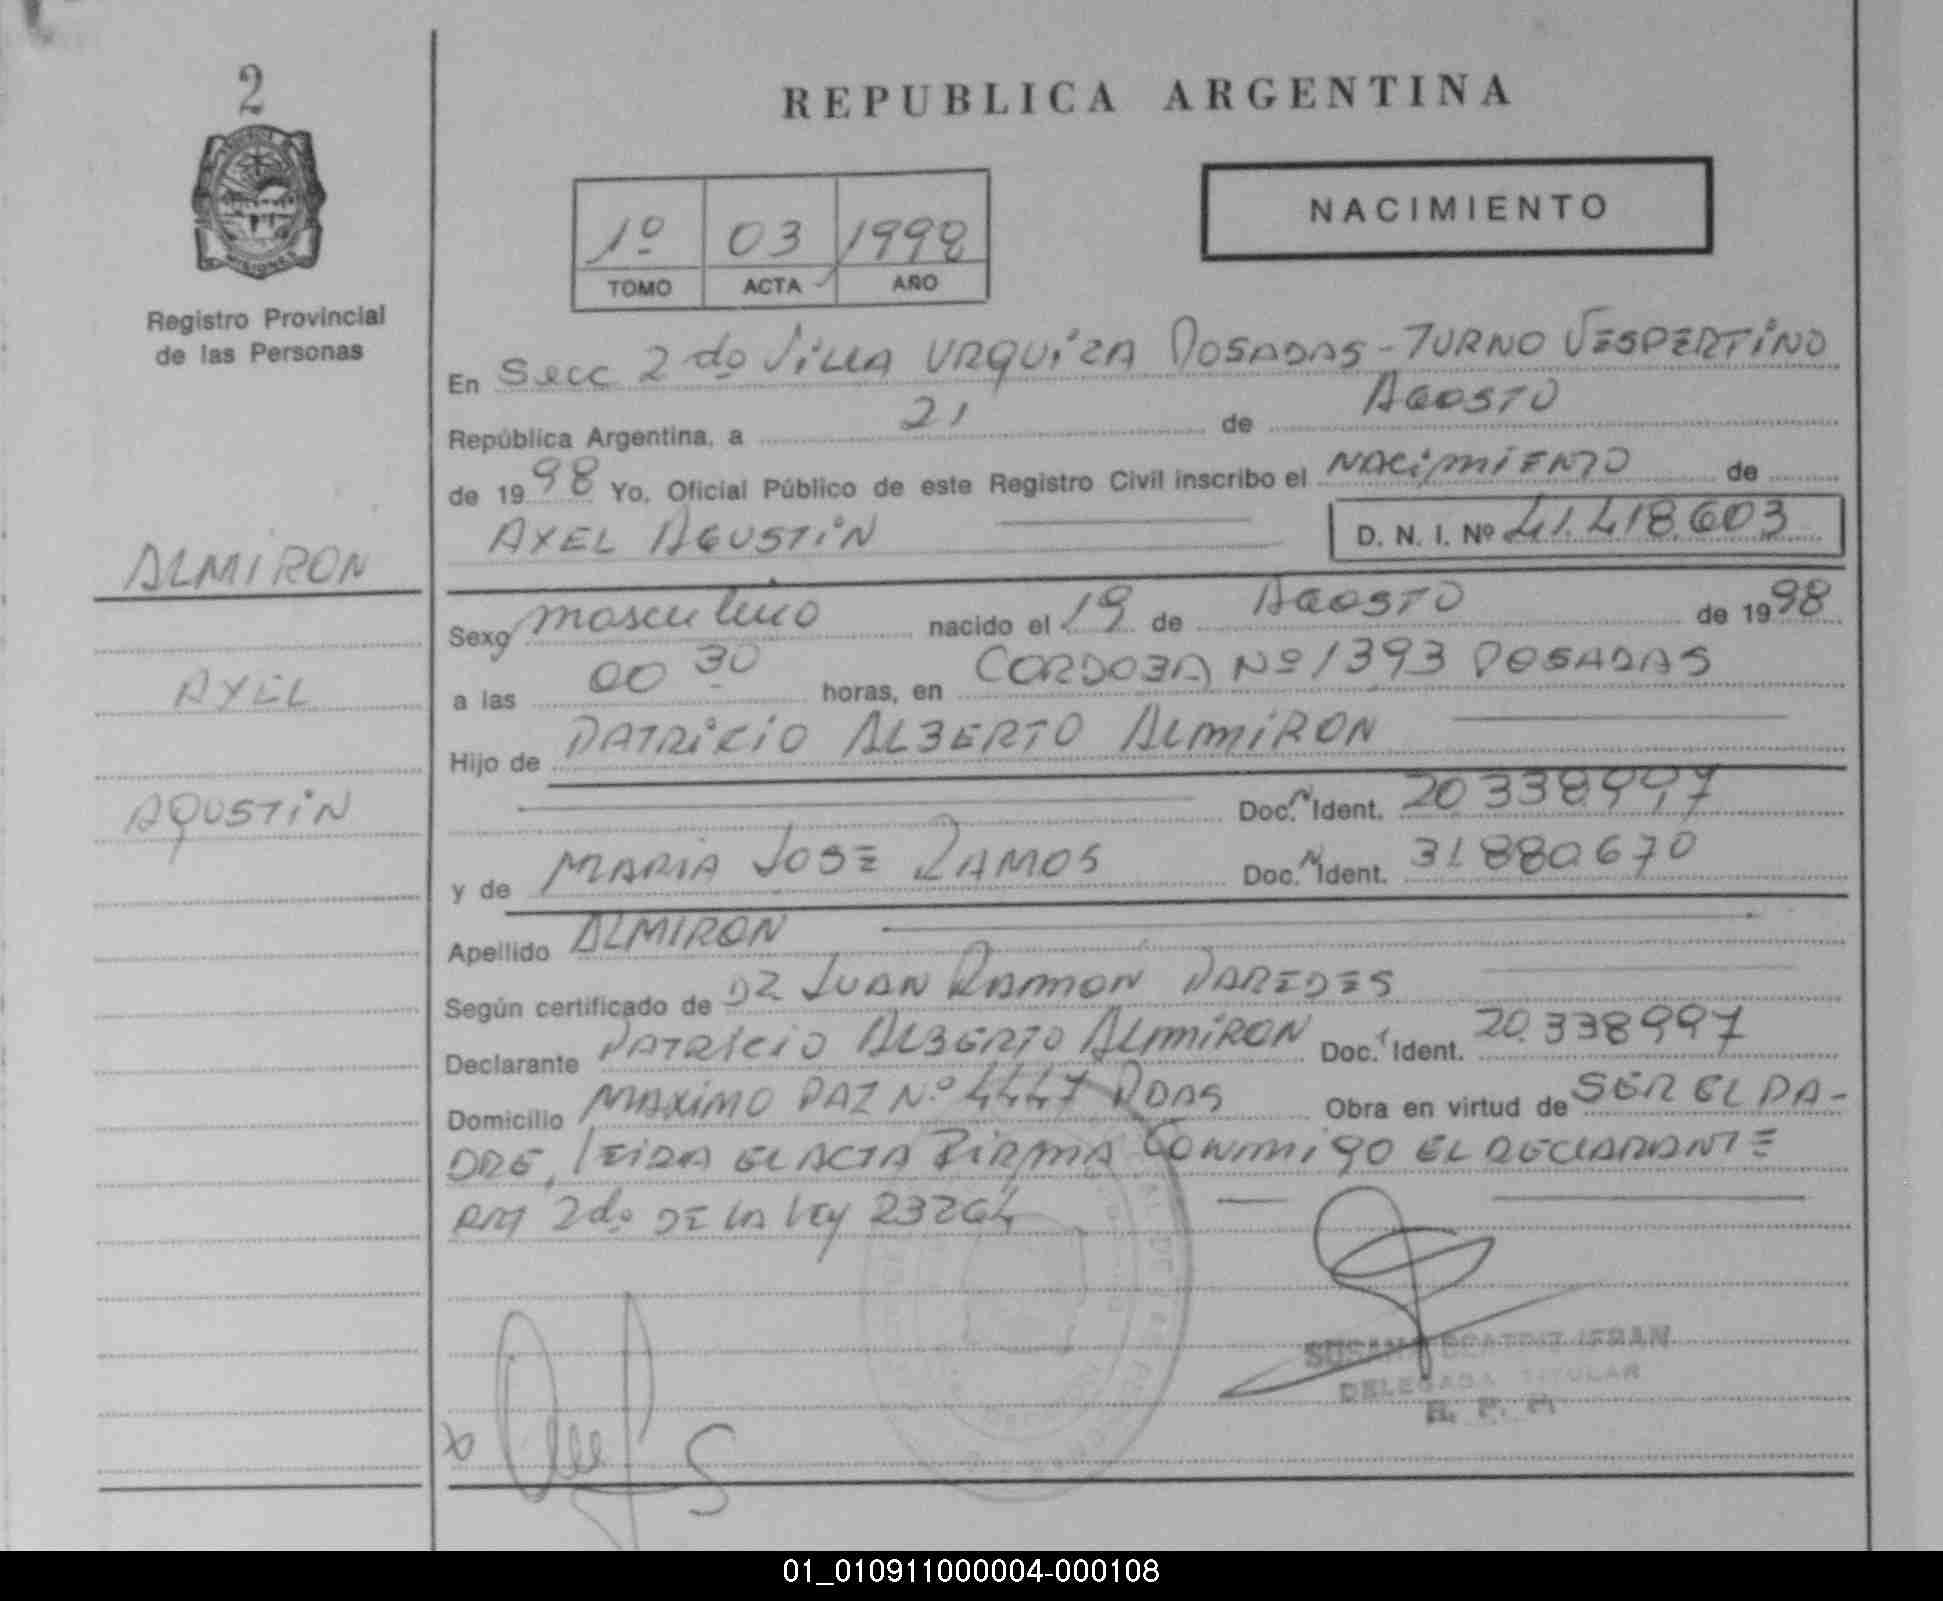 2
MISIONES
Registro Provincial
de las Personas
ALMIRON
AXEL
AGUSTIN
REPUBLICA ARGENTINA
1º 03 1998
TOMO ACTA AÑO
NACIMIENTO
En Secc 2do VILLA URQUIZA POSADAS - TURNO VESPERTINO
República Argentina, a 21 de AGOSTO
de 1998 Yo, Oficial Público de este Registro Civil inscribo el NACIMIENTO de
AXEL AGUSTIN D. N. I. Nº 41.418.603
Sexo masculino nacido el 19 de AGOSTO de 1998
a las 00 30 horas, en CORDOBA Nº 1393 POSADAS
Hijo de PATRICIO ALBERTO ALMIRON
Doc. Ident. 20.338.997
y de MARIA JOSE RAMOS Doc. Ident. 31.880.670
Apellido ALMIRON
Según certificado de DR JUAN RAMON PAREDES
Declarante PATRICIO ALBERTO ALMIRON Doc. Ident. 20.338997
Domicilio MAXIMO PAZ Nº 4447 PDAS Obra en virtud de SER EL PA-
DRE, LEIDA EL ACTA FIRMA CONMIGO EL DECLARANTE
Art 2do DE LA LEY 23264
SUSANA BEATRIZ IFRAN
DELEGADA TITULAR
R. P. P.
01_010911000004-000108